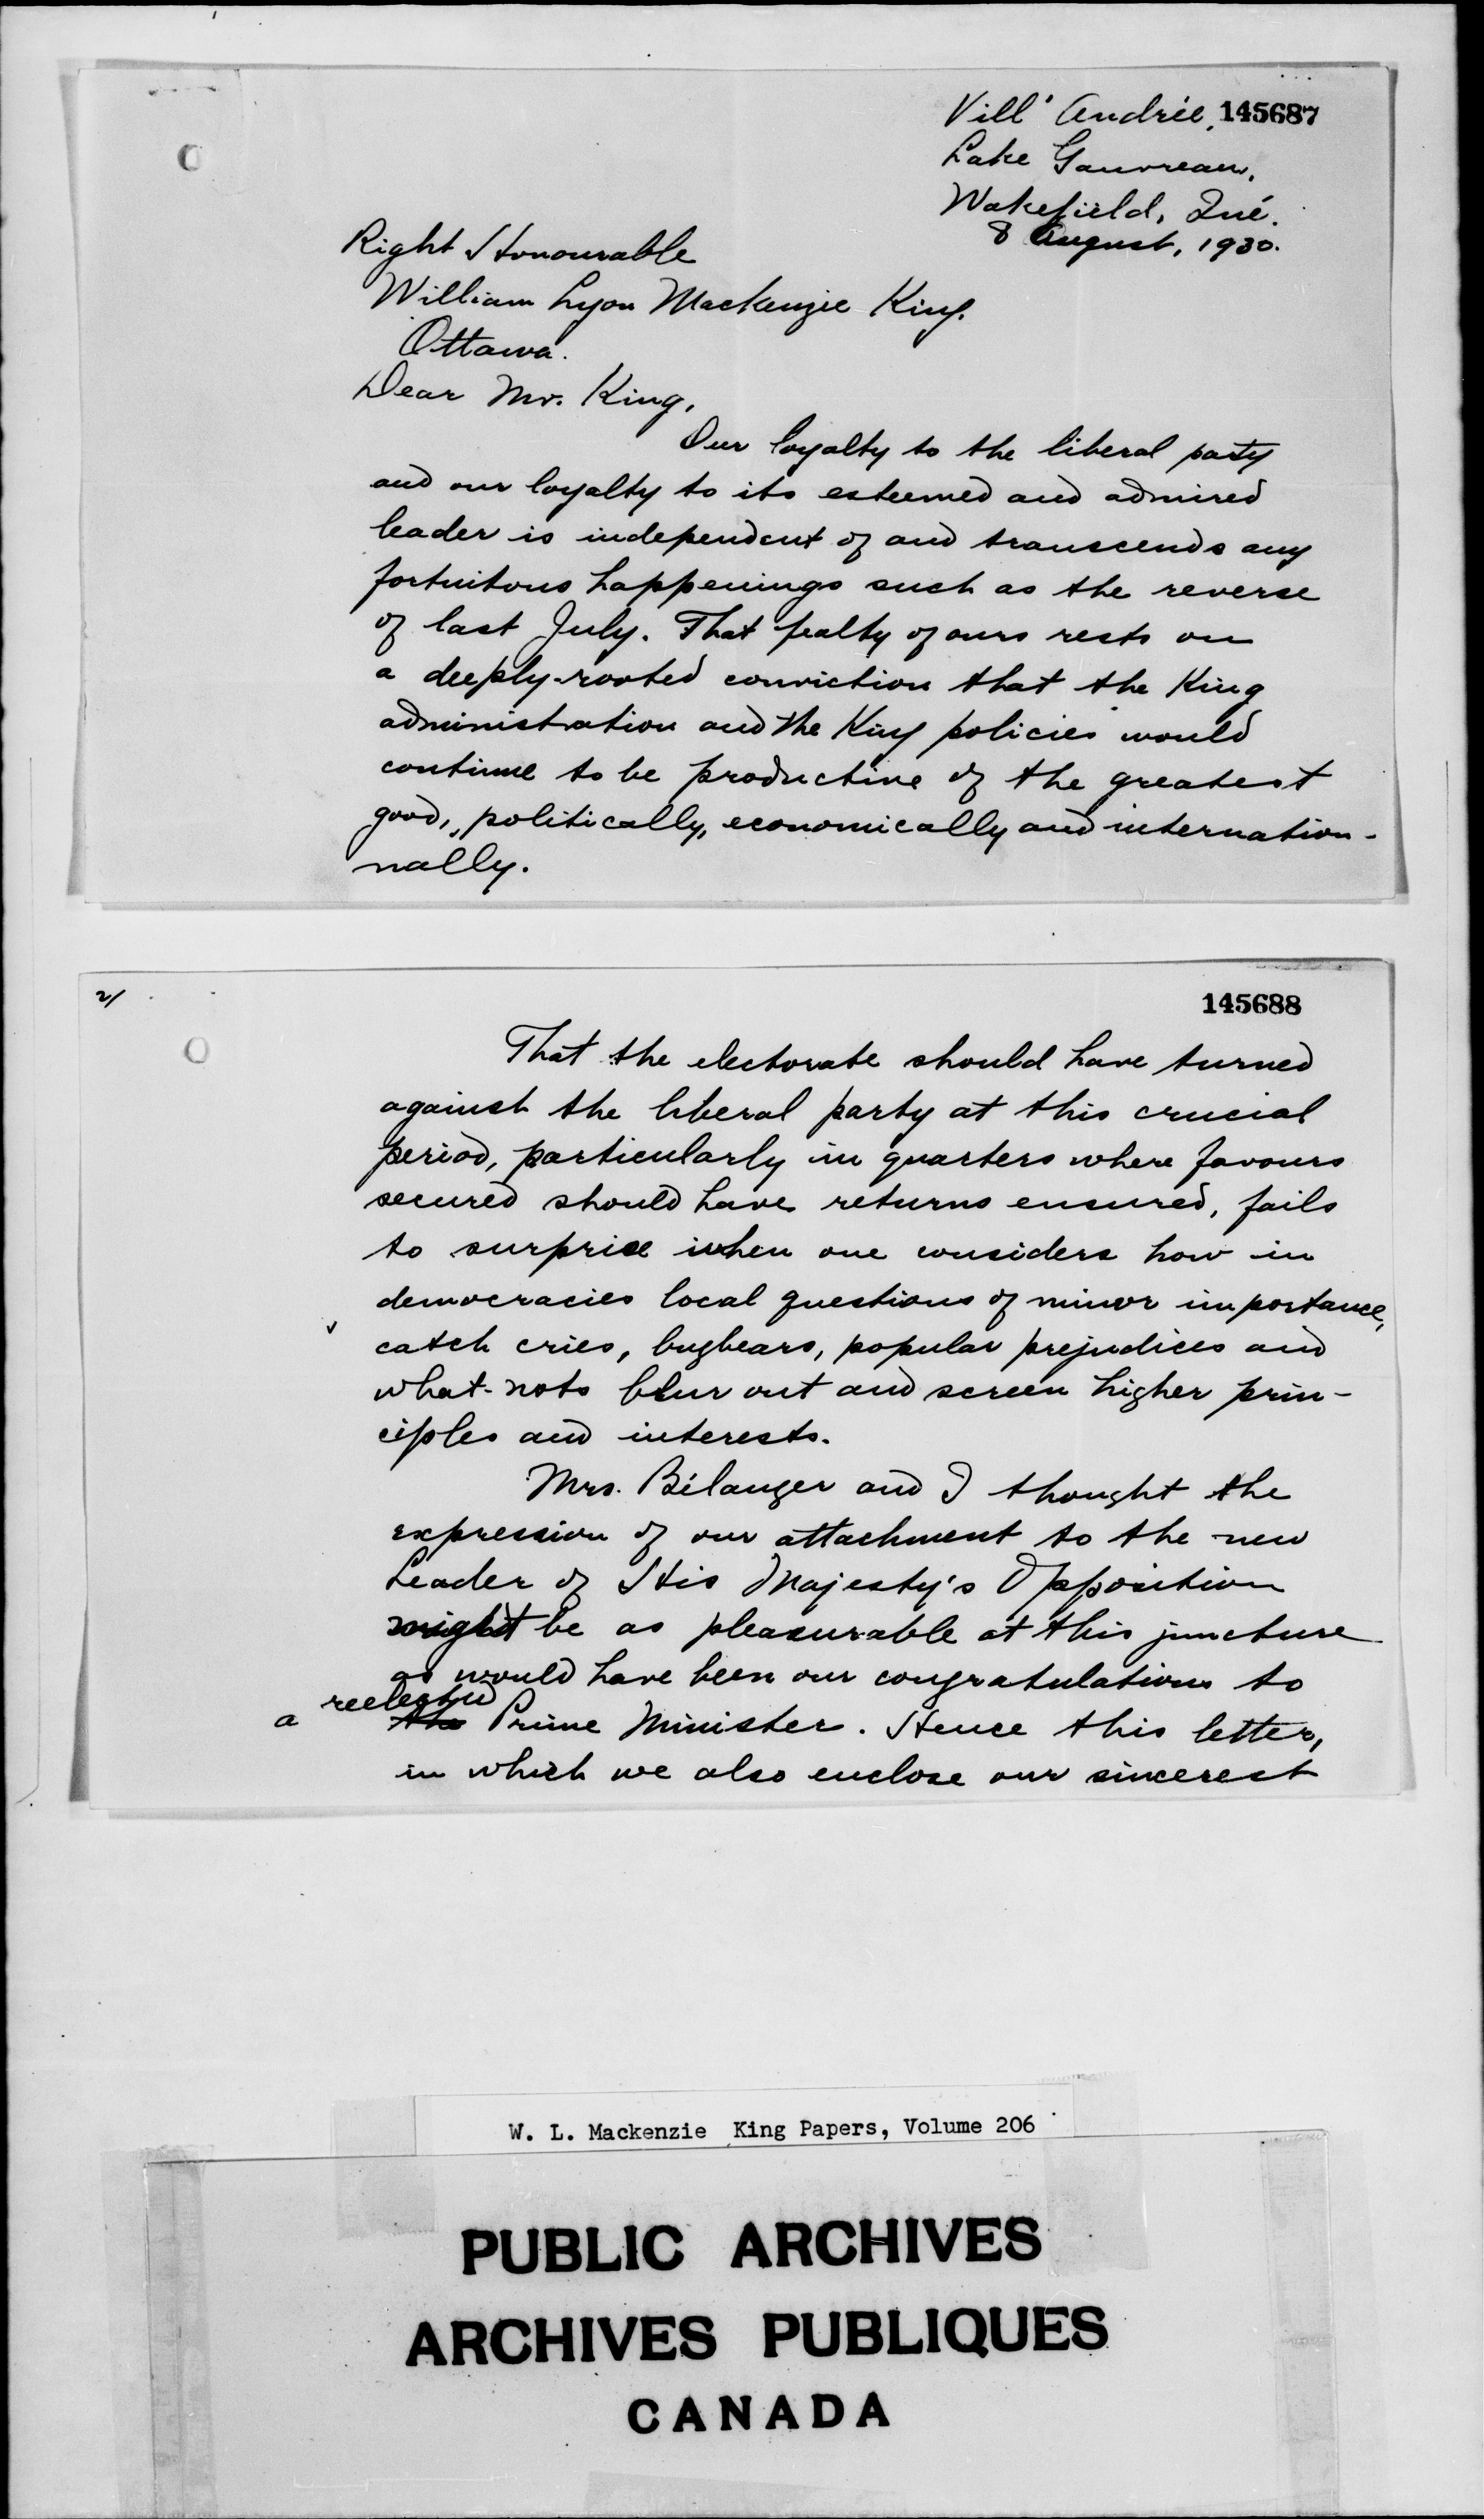 Vill' Andrée, 145687
Lake Gauvreau,
Wakefield, Qué.
8 August, 1930.
Right Honourable
William Lyon Mackenzie King.
Ottawa.
Dear Mr. King,
Our loyalty to the liberal party
and our loyalty to its esteemed and admired
leader is independent of and transcends any
fortuitous happenings such as the reverse
of last July. That fealty of ours rests on
a deeply-rooted conviction that the King
administration and the King policies would
continue to be productive of the greatest
good, politically, economically and internation-
nally.
2/
145688
That the electorate should have turned
against the liberal party at this crucial
period, particularly in quarters where favours
secured should have returns ensured, fails
to surprise when one considers how in
democracies local questions of minor importance,
catch cries, bugbears, popular prejudices and
what-nots blur out and screen higher prin-
ciples and interests.
Mrs. Bélanger and I thought the
expression of our attachment to the new
Leader of His Majesty's Opposition
might be as pleasurable at this juncture
as would have been our congratulations to
a reelected the Prime Minister. Hence this letter,
in which we also enclose our sincerest
W. L. Mackenzie King Papers, Volume 206
PUBLIC ARCHIVES
ARCHIVES PUBLIQUES
CANADA